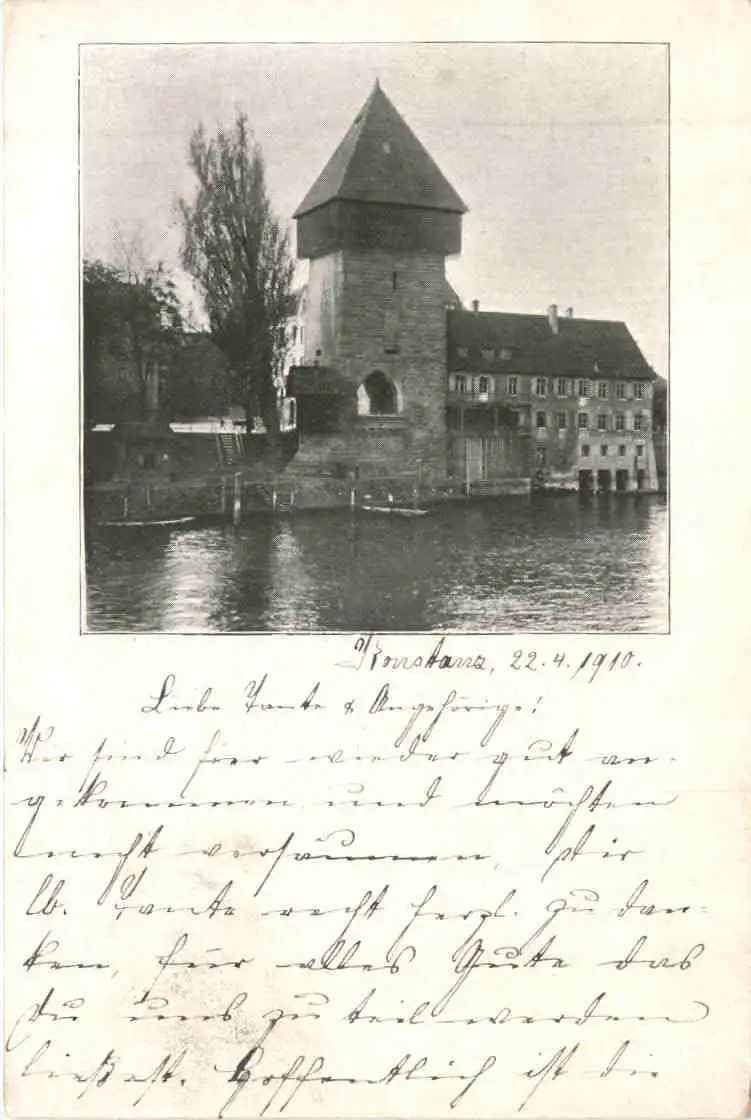 Konstanz, 22.4.1910.
Liebe Tante & Angehörige!
Wir sind hier wieder gut an-
gekommen und möchten
nicht versäumen, Dir
lb. Tante recht herzl. zu dan-
ken, für alles Gute das
Du uns zu teil werden
ließest. Hoffentlich ist die